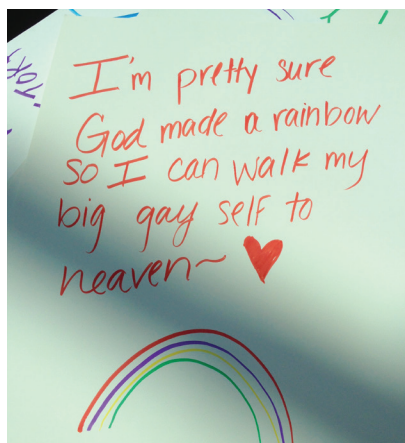 I'm pretty sure
God made a rainbow
so I can walk my
big gay self to
heaven~ ♥